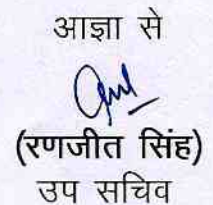 आज्ञा से
(रणजीत सिंह)
उप सचिव